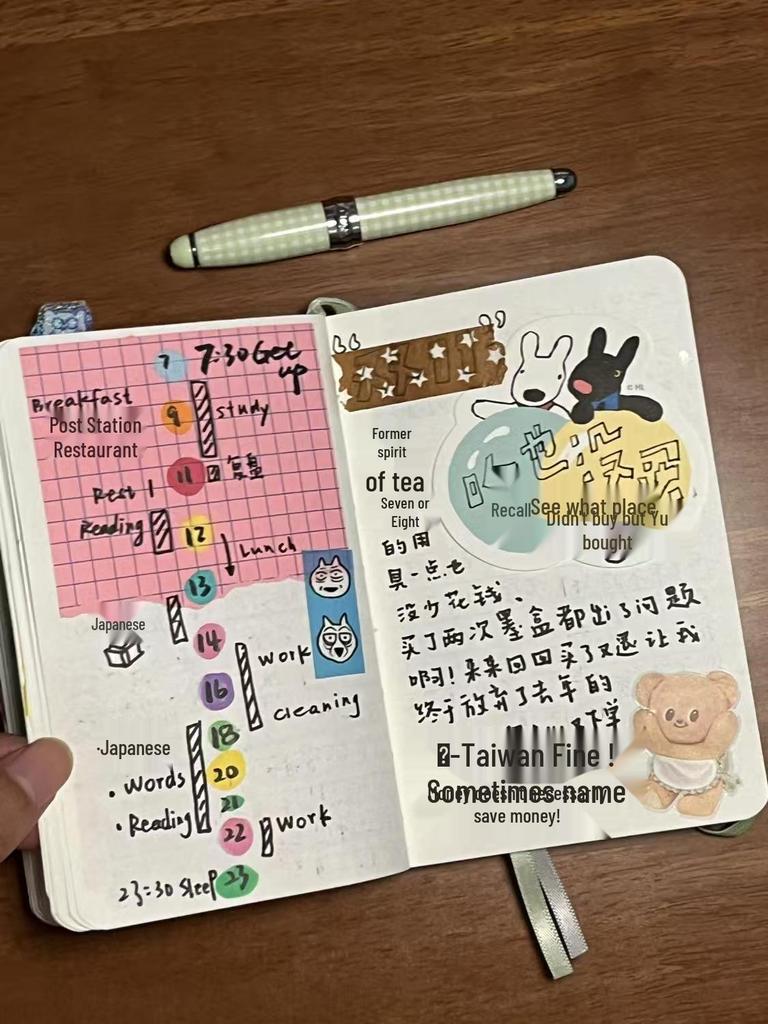 7
7:30 Get up
Breakfast
Post Station
Restaurant
9
study
11
复盘
Rest
Reading
12
Lunch
13
Japanese
14
work
16
cleaning
18
·Japanese
· Words
20
21
· Reading
22
work
23:30 Sleep
23
© ML
Former
spirit
of tea
Seven or
Eight
Recall
See what place
Didn't buy but Yu
bought
也没
的用
具一点也
没少花钱、
买了两次墨盒都出了问题
啊!来来回回买了又退让我
终于放弃了去年的
下单
-Taiwan Fine !
Sometimes name
save money!